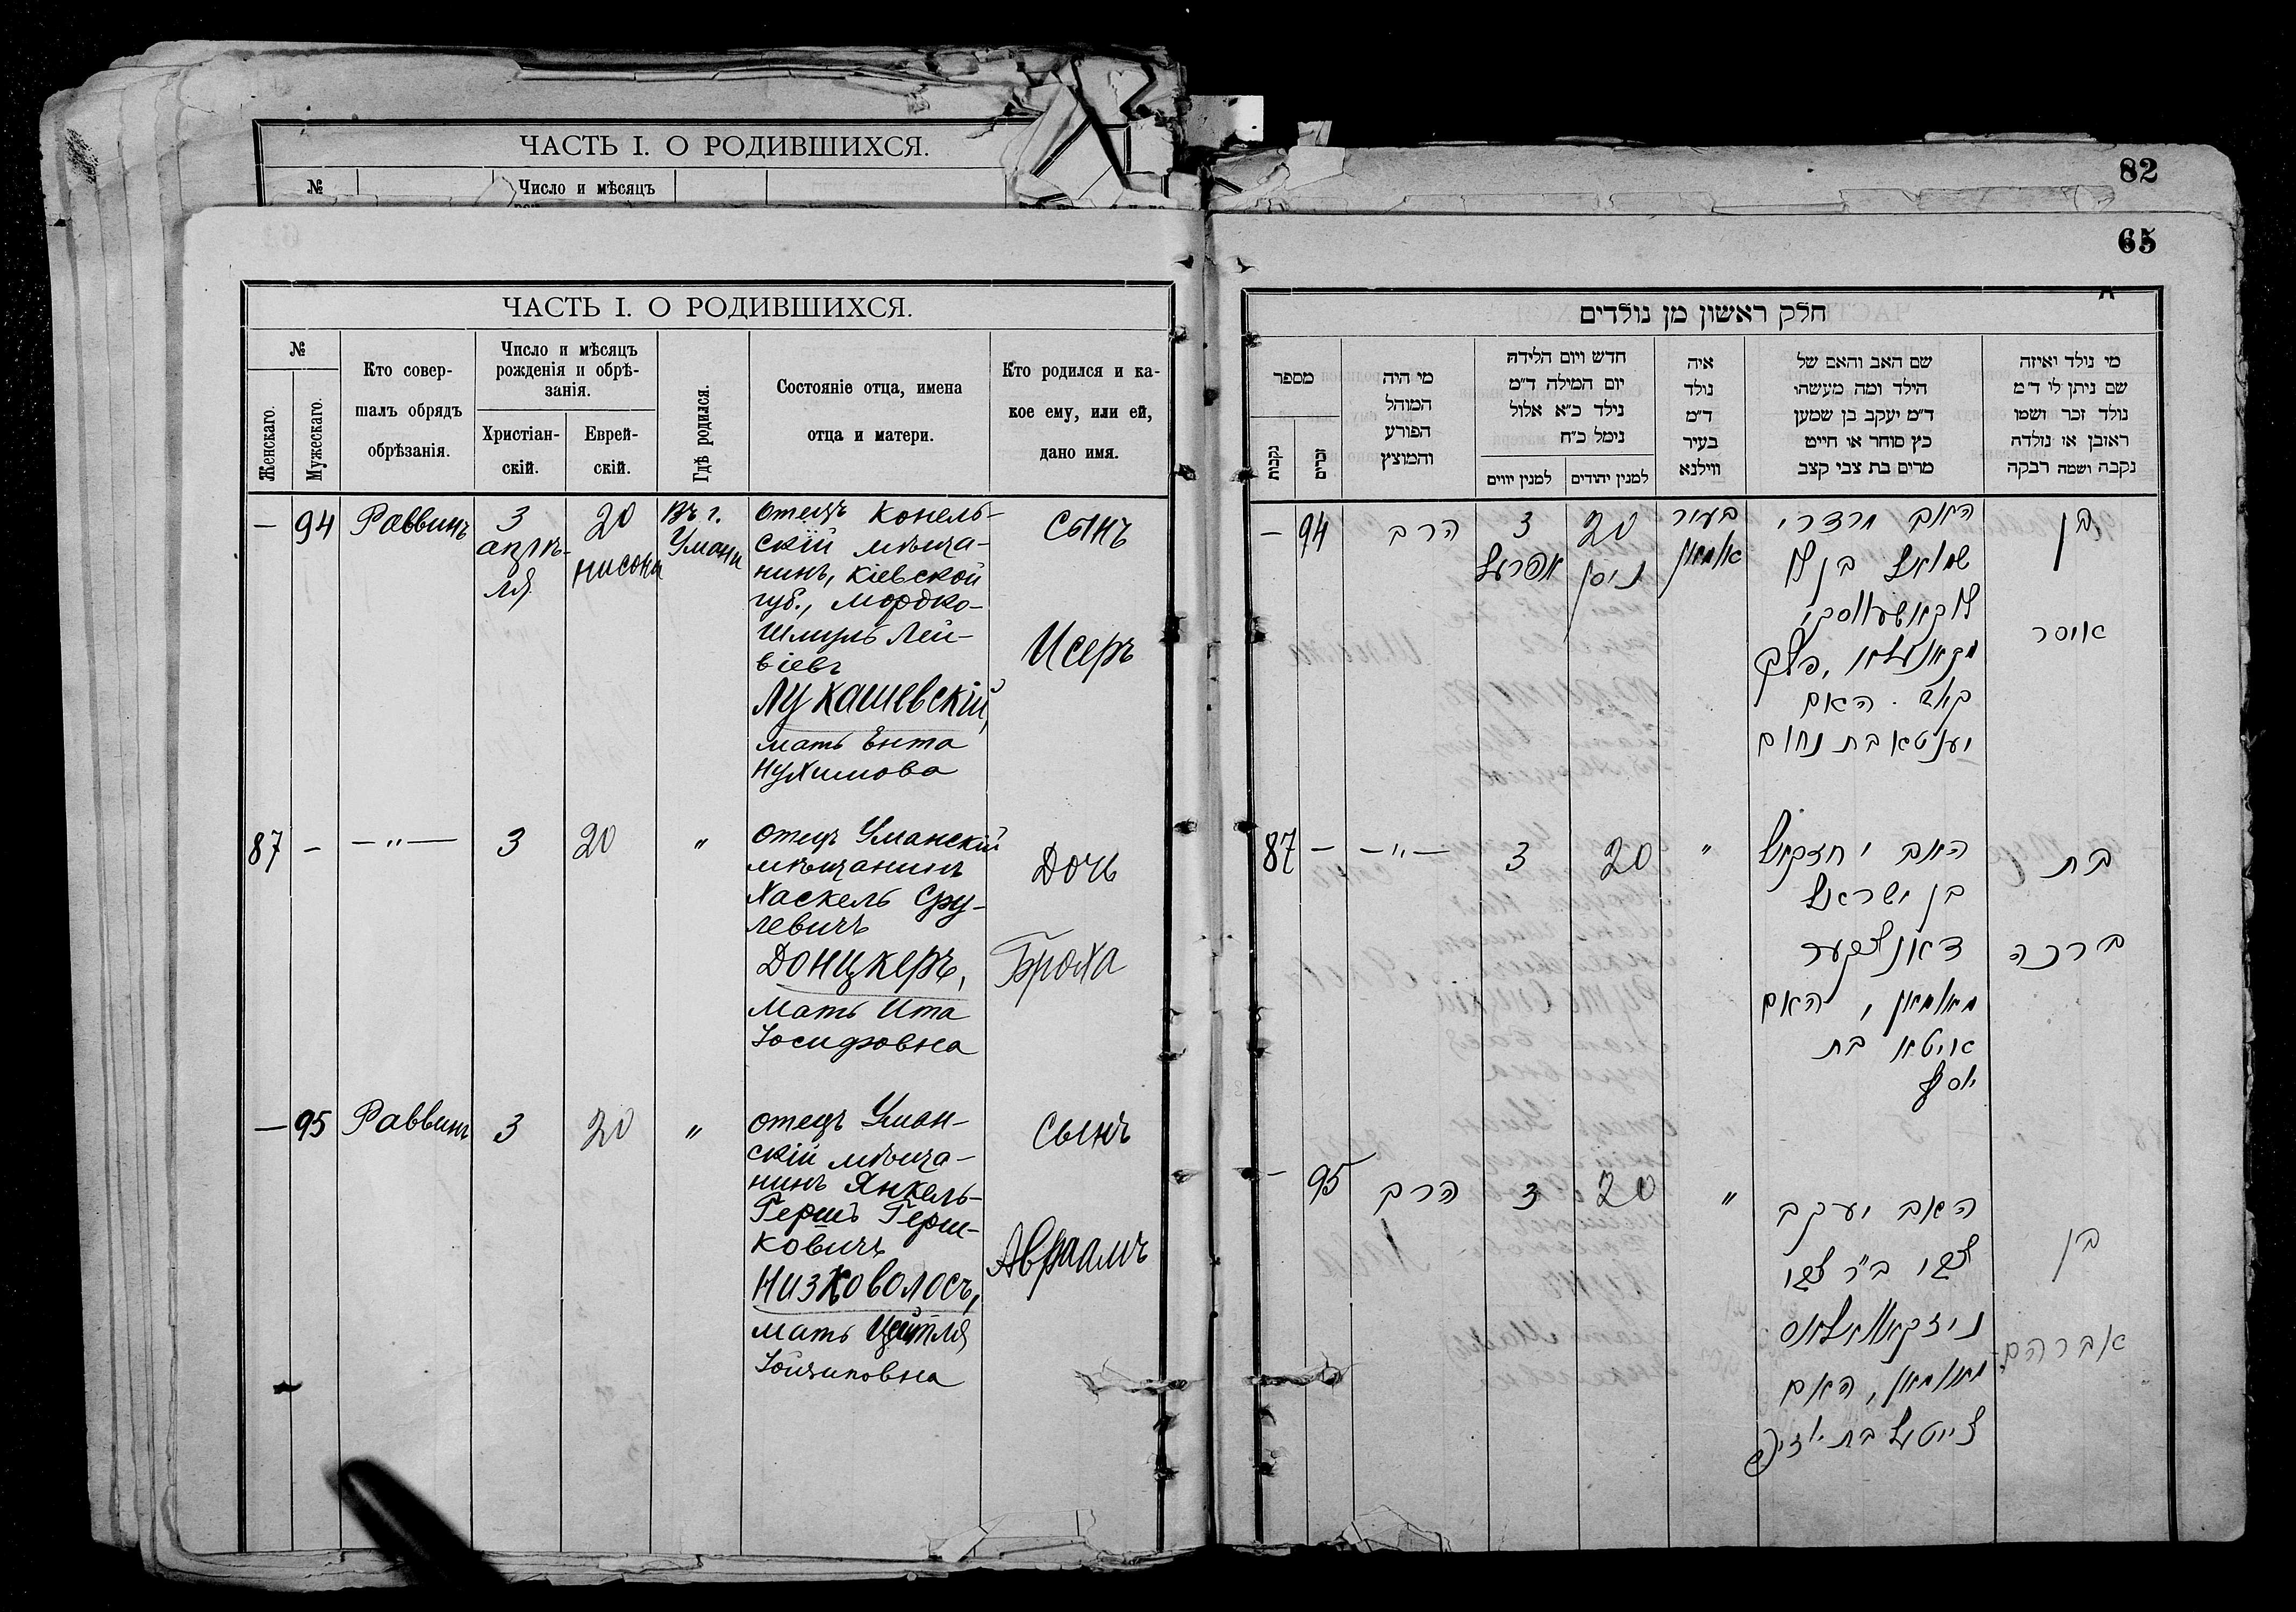 ЧАСТЬ I. О РОДИВШИХСЯ.
№
Число и мѣсяцъ
82
65
ЧАСТЬ I. О РОДИВШИХСЯ.
№
Женскаго.
Мужескаго.
Кто совер-
шалъ обрядъ
обрѣзанія.
Число и мѣсяцъ
рожденія и обрѣ-
занія.
Христіан-
скій.
Еврей-
скій.
Гдѣ родился.
Состояніе отца, имена
отца и матери.
Кто родился и ка-
кое ему, или ей,
дано имя.
— 94 Раввинъ 3 апрѣ-ля 20 нисона Въ г. Умани
отецъ Конель-
скій мѣща-
нинъ, Кіевской
губ., Мордко-
Шмуль Лей-
віевъ
Лукашевскій,
мать Ента
Нухимова
Сынъ
Исеръ
87 — —"— 3 20 "
отецъ Уманскій
мѣщанинъ
Хаскель Сру-
левичъ
Донцкеръ,
Мать Ита
Іосифовна
Дочь
Броха
— 95 Раввинъ 3 20 "
отецъ Уман-
скій мѣща-
нинъ Янкель-
Гершъ Герш-
ковичъ
Низковолосъ,
мать Цейтля
Іойзиповна
Сынъ
Авраамъ
חלק ראשון מן נולדים
מספר
נקבות
זכרים
מי היה
המוהל
הפורע
והמוצץ
חדש ויום הלידה
יום המילה ד"מ
נילד כ"א אלול
נימל כ"ח
למנין יווים
למנין יהודים
איה
נולד
ד"מ
בעיר
ווילנא
שם האב והאם של
הילד ומה מעשהו
ד"מ יעקב בן שמען
כץ סוחר או חייט
מרים בת צבי קצב
מי נולד ואיזה
שם ניתן לי ד"מ
נולד זכר ושמו
ראובן או נולדה
נקבה ושמה רבקה
— 94 הרב 3 אפריל 20 ניסן בעיר אומאן
האב מרדכי
שמואל בן לוי
לוקאשעווסקי
האם
יענטא בת נחום
בן
איסר
87 — —"— 3 20 "
האב יחזקאל
בן ישראל
דאנצקער
מאומאן, האם
איטא בת
יוסף
בת
ברכה
— 95 הרב 3 20 "
האב יעקב
צבי ב"ר צבי
ניזקאוואלאס
מאומאן, האם
צייטל בת יוזיפ
בן
אברהם